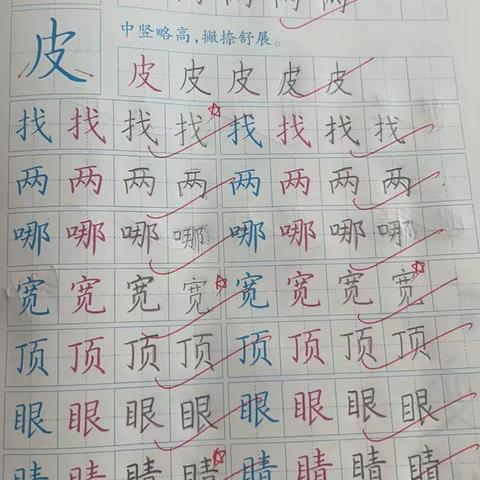 中竖略高，撇捺舒展。
皮 皮 皮 皮 皮 皮
找 找 找 找 找 找 找 找
两 两 两 两 两 两 两 两
哪 哪 哪 哪 哪 哪 哪 哪
宽 宽 宽 宽 宽 宽 宽 宽
顶 顶 顶 顶 顶 顶 顶 顶
眼 眼 眼 眼 眼 眼 眼 眼
睛 睛 睛 睛 睛 睛 睛 睛